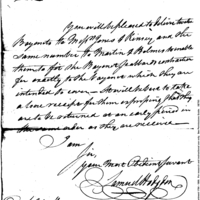 You will be pleased to deliver ten
Bayonets to Mess.rs Jones & Kinsey, and the
same number to Martin & Holmes to enable
them to for the Bayonet Scabbards contracted
for exactly to the Bayonets which they are
intended to cover — it will be best to take
a loan receipt for them expressing that they
are to be returned at an early period in
the same order as they are receive
I am
Sir,
your most Obedient Servant
Samuel Hodgdon